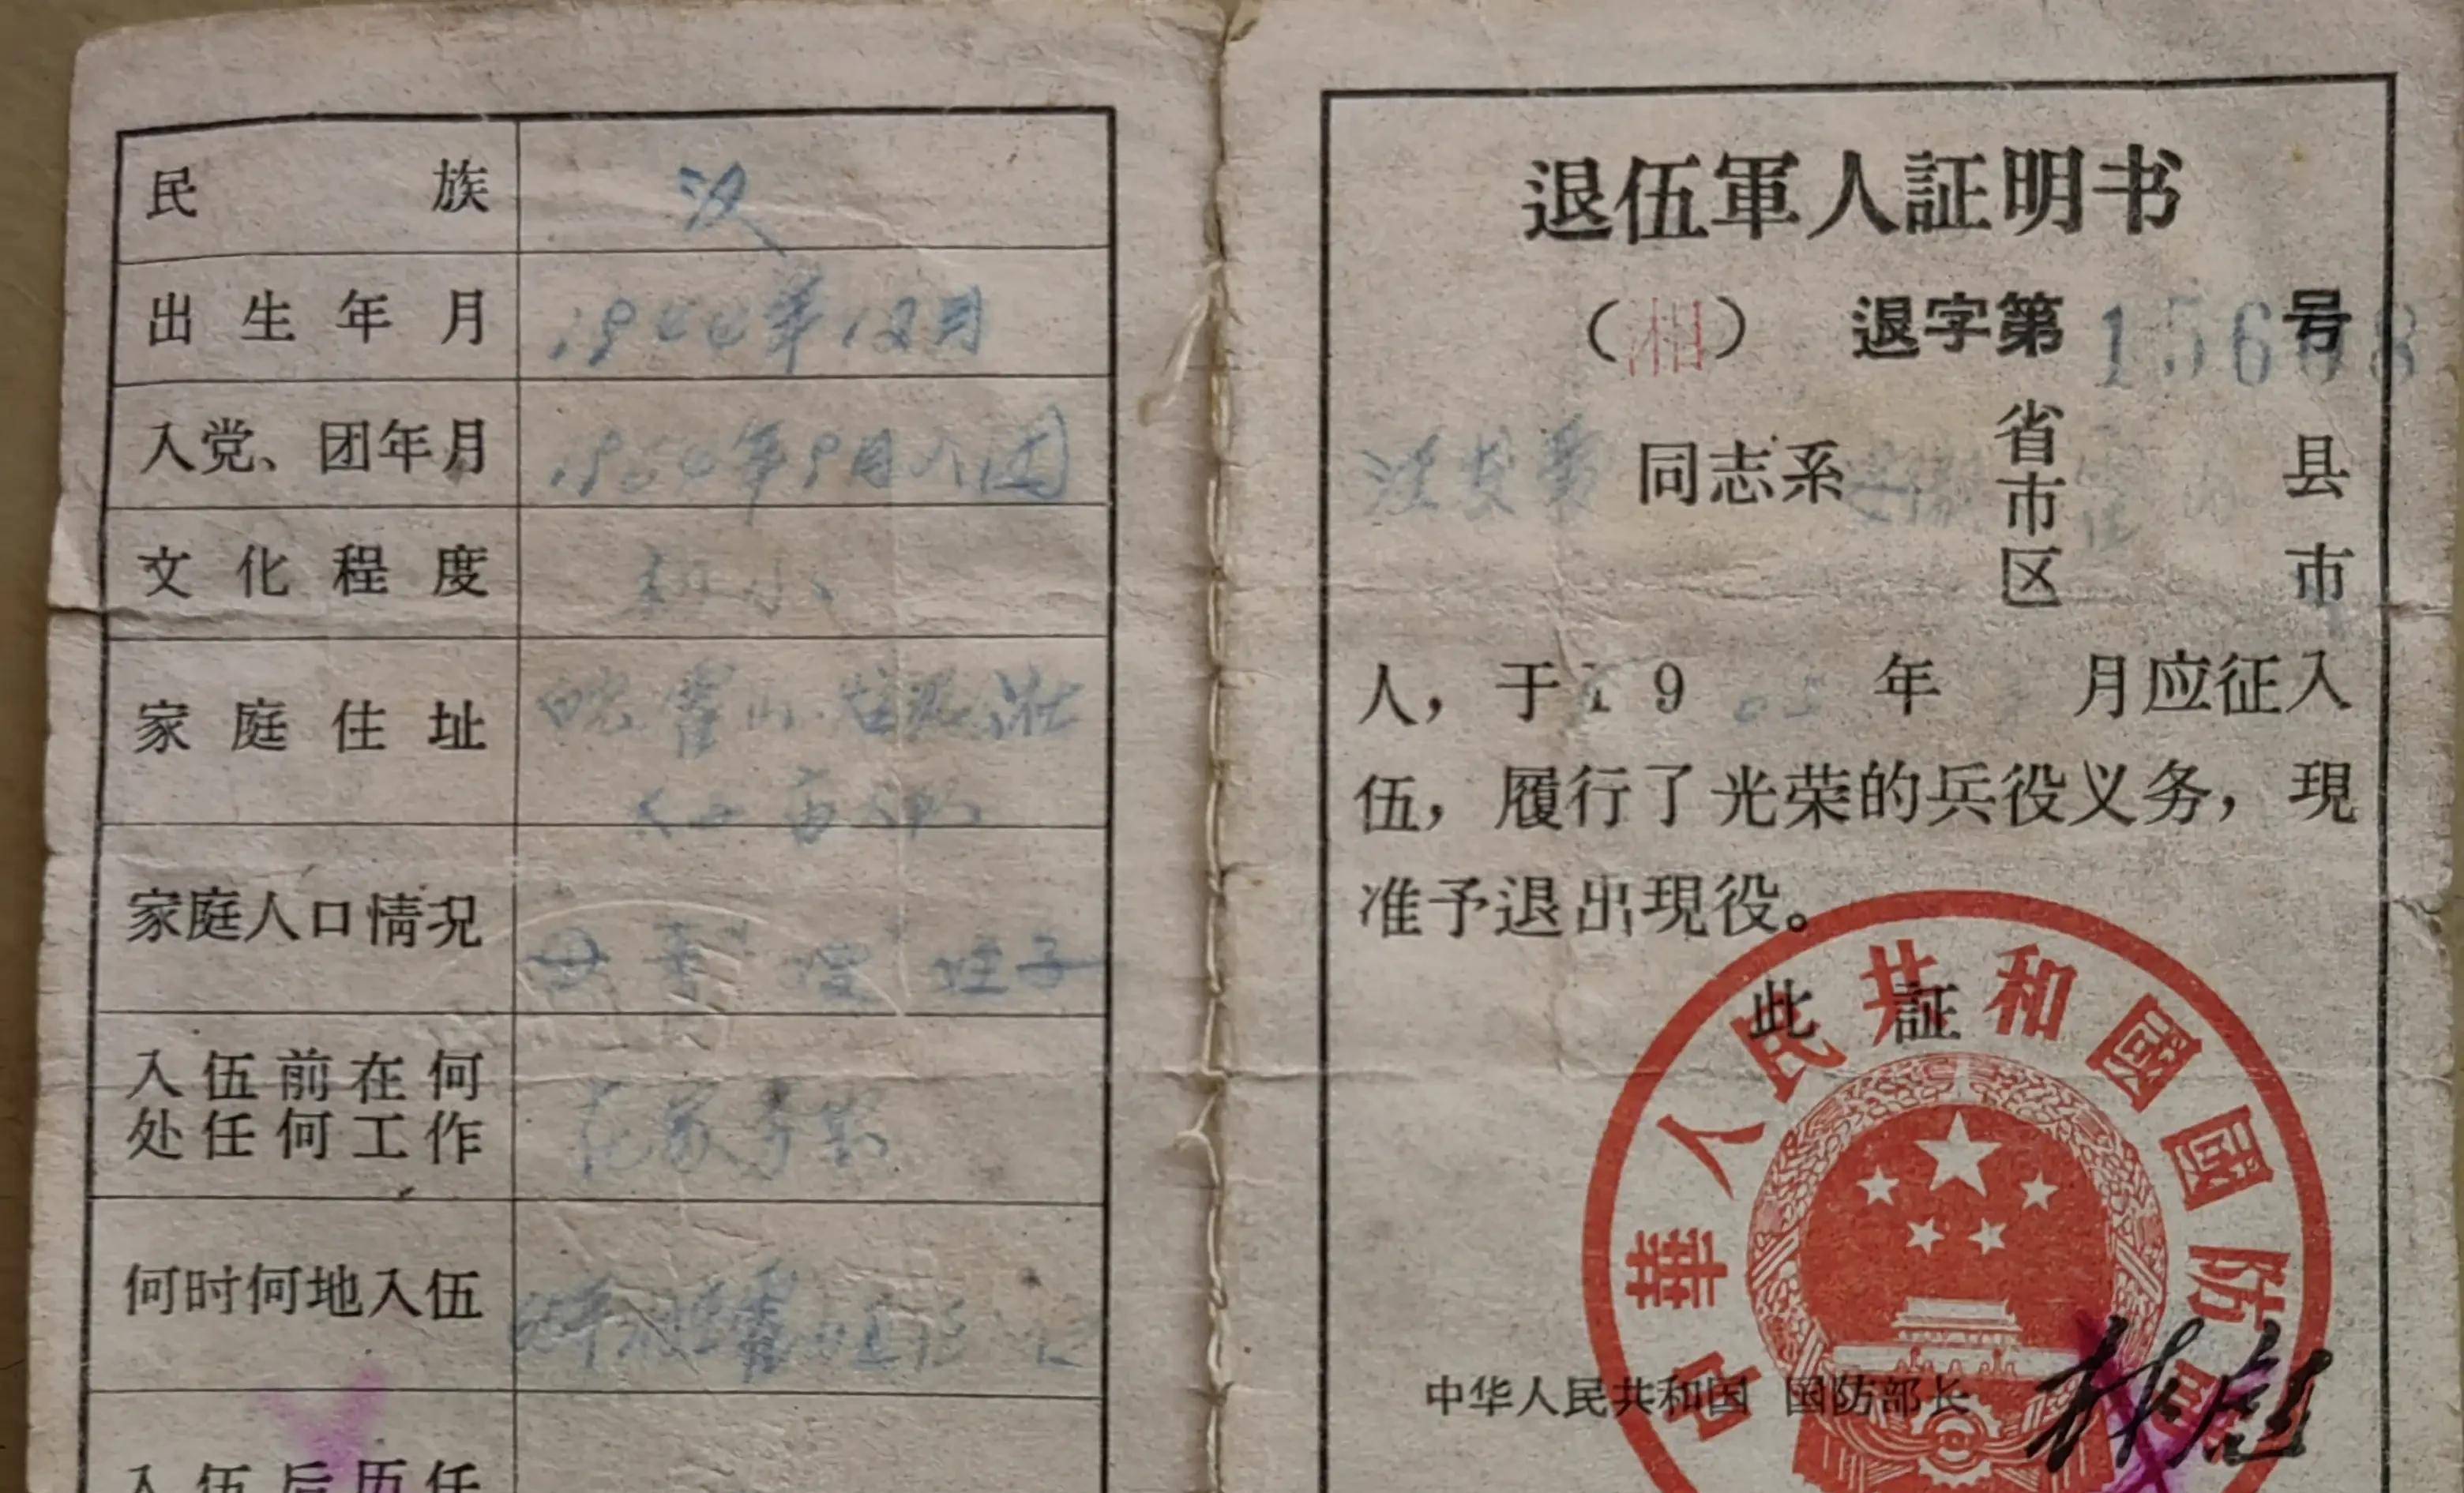 民族 汉
出生年月 1944年12月
入党、团年月 1964年9月入团
文化程度 初小
家庭住址 皖霍山
家庭人口情况 母 妻 侄子
入伍前在何
处任何工作 在家务农
何时何地入伍 霍山
入伍后历任
退伍軍人証明书
（湘） 退字第 号
同志系 安徽 省市区 霍山 县市
人，于19 65 年 月应征入
伍，履行了光荣的兵役义务，現
准予退出現役。
此証
中華人民共和國國防部
中华人民共和国 国防部长 林彪